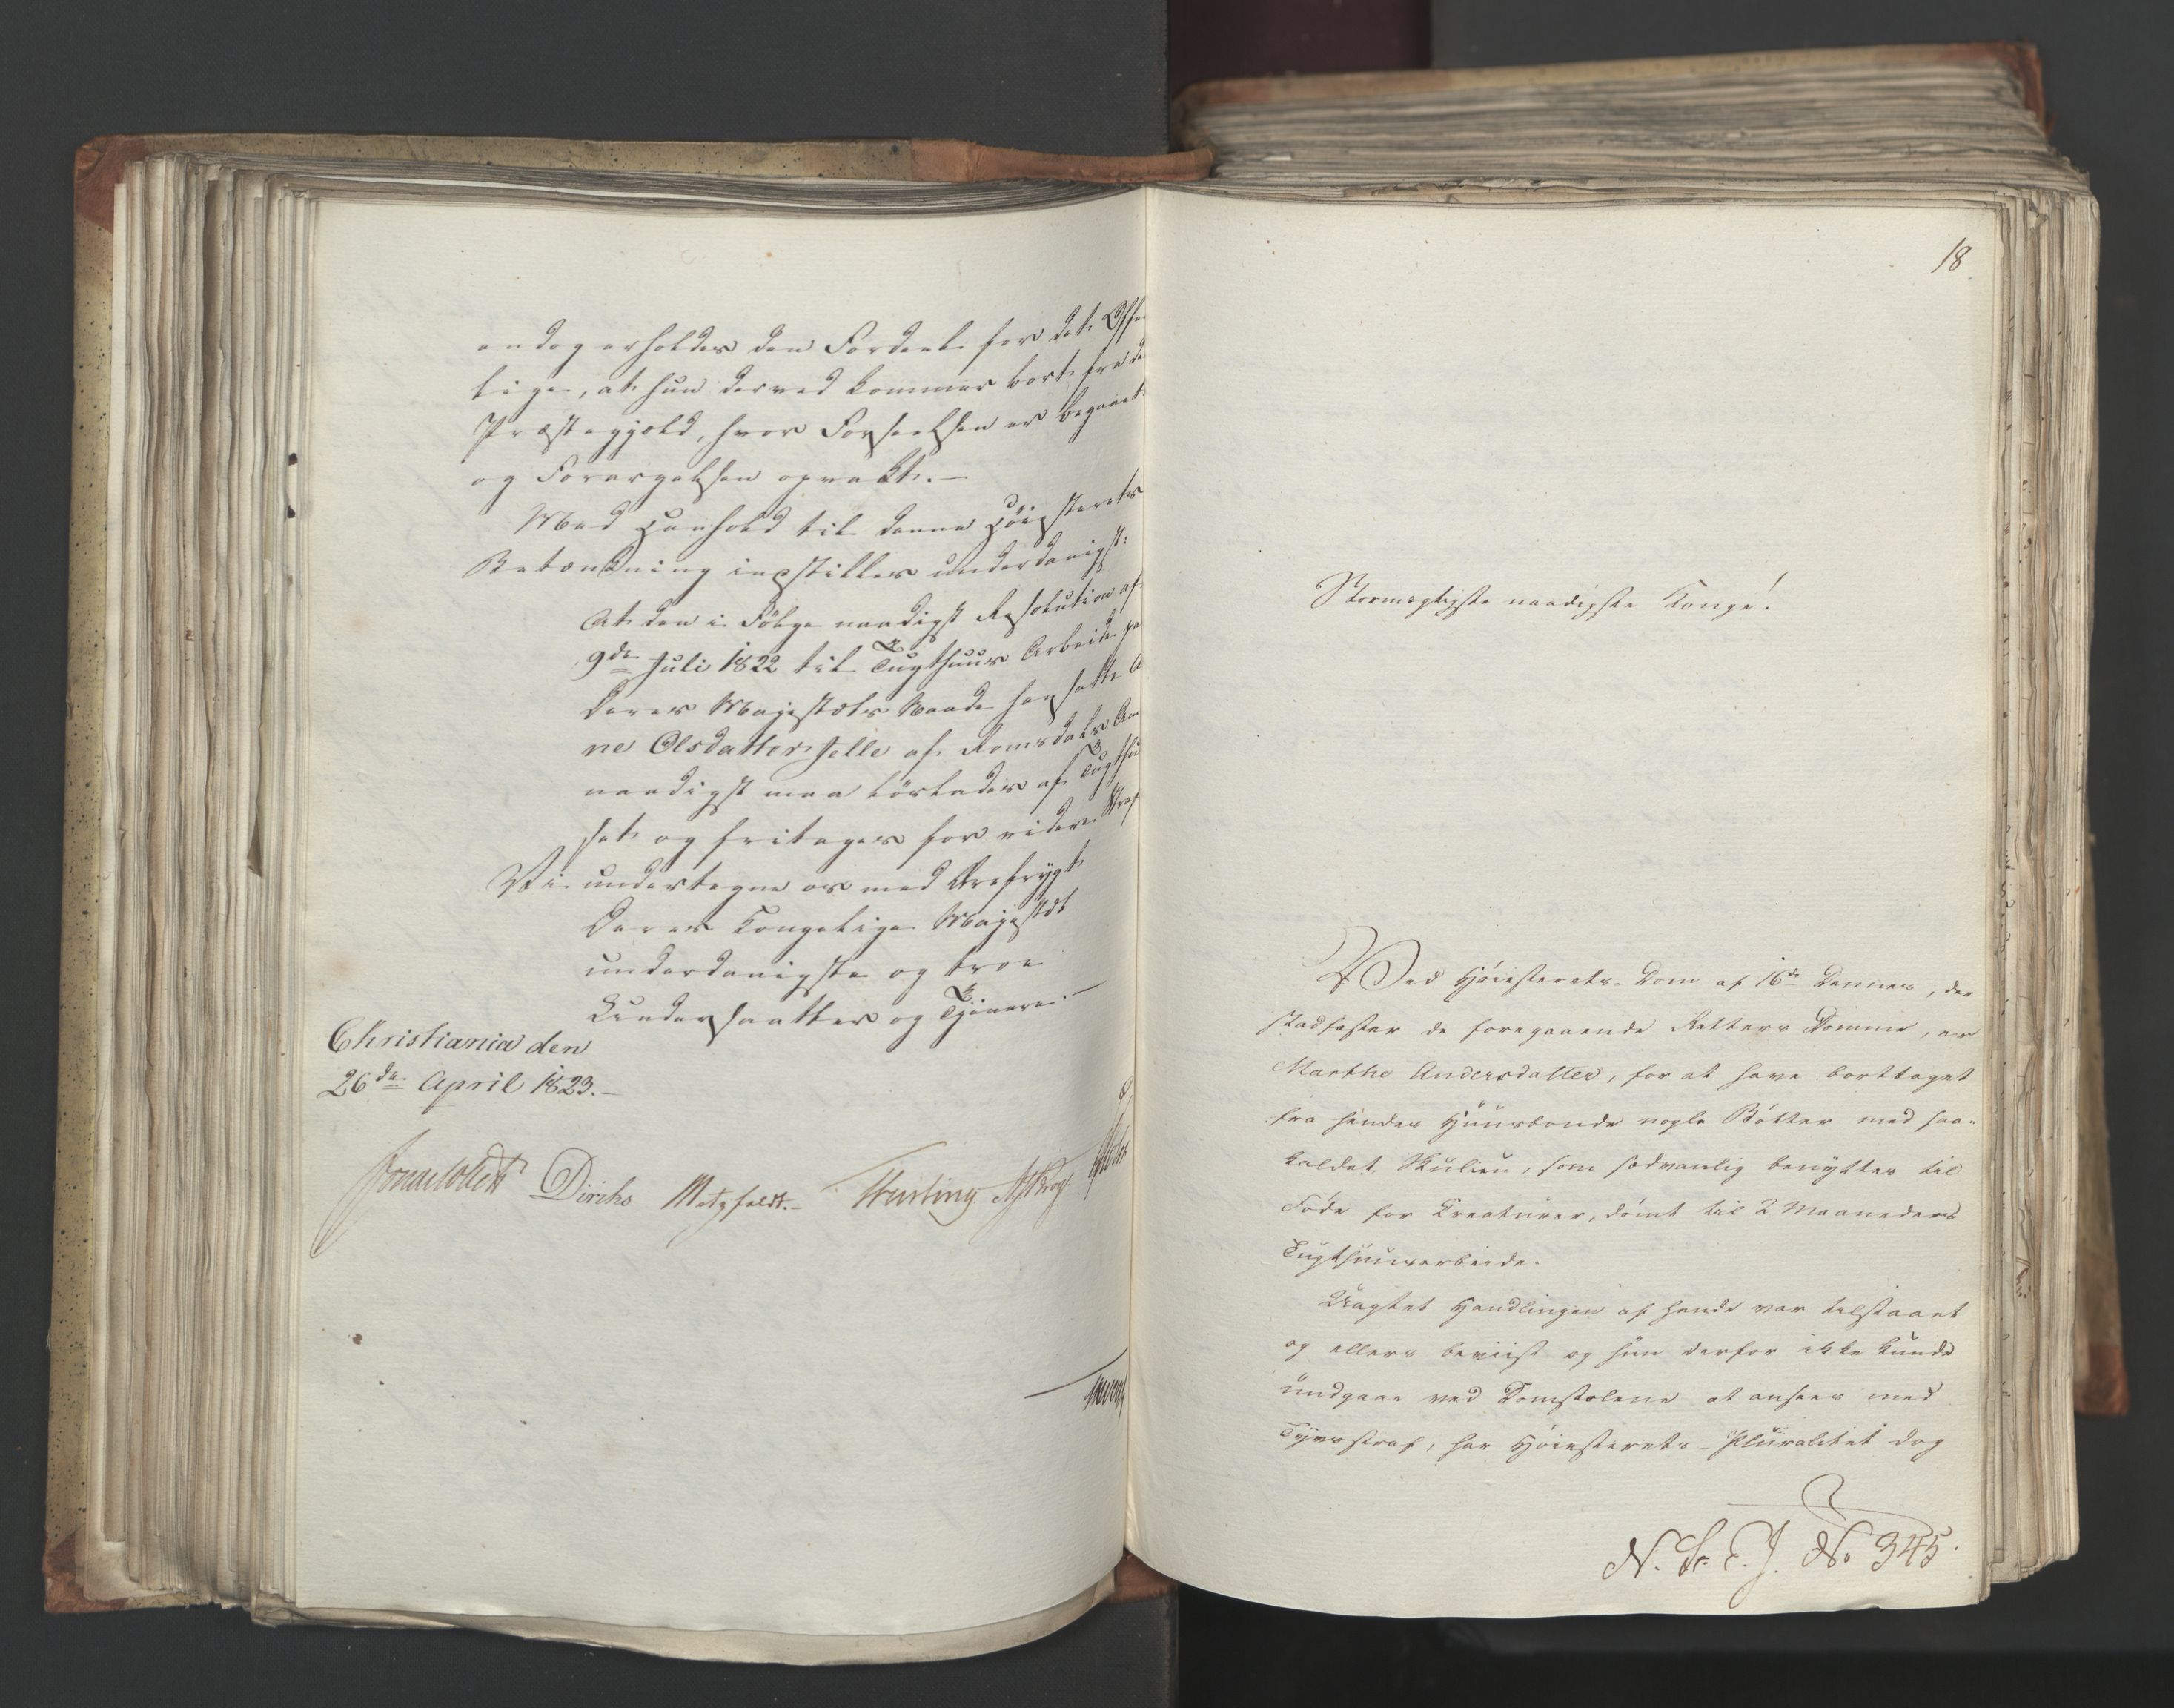 endog erholdes den Fordeel for det Offe
lige, at hun derved kommer bort fra de
Præstegjeld, hvor Forseelsen er begaaet
og Forargelsen opvakt.—
Med Henhold til denne Høiesterets
Betænkning indstilles underdanigst:
At den i Følge naadigst Resolution af
9de Juli 1822 til Tugthuus Arbeide paa
Deres Majestæts Naade hensatte A
ne Olsdatter Jelle af Romsdals Am
naadigst maa løslades af Tugthu
set og fritages for videre Straf
Vi undertegne os med Ærefrygt
Deres Kongelige Majestæt
underdanigste og troe
Undersaatter og Tjenere.—
Christiania den
26de April 1823.—
Sommerhielm Diriks Motzfeldt.— Treschow Krog
18
Stormægtigste naadigste Konge!
Ved Høiesterets-Dom af 16de Dennes, der
stadfæster de foregaaende Retters Domme, er
Marthe Andersdatter, for at have borttaget
fra hendes Huusbonde nogle Bøtter med saa-
kaldet Skulien, som sædvanlig benyttes til
Føde for Creaturer, dømt til 2 Maaneders
Tugthuusarbeide.
Uagtet Handlingen af hende var tilstaaet
og ellers beviist og hun derfor ikke kunde
undgaae ved Domstolene at ansees med
Tyvsstraf, har Høiesterets-Pluralitet dog
N. St. E. J. No 345.